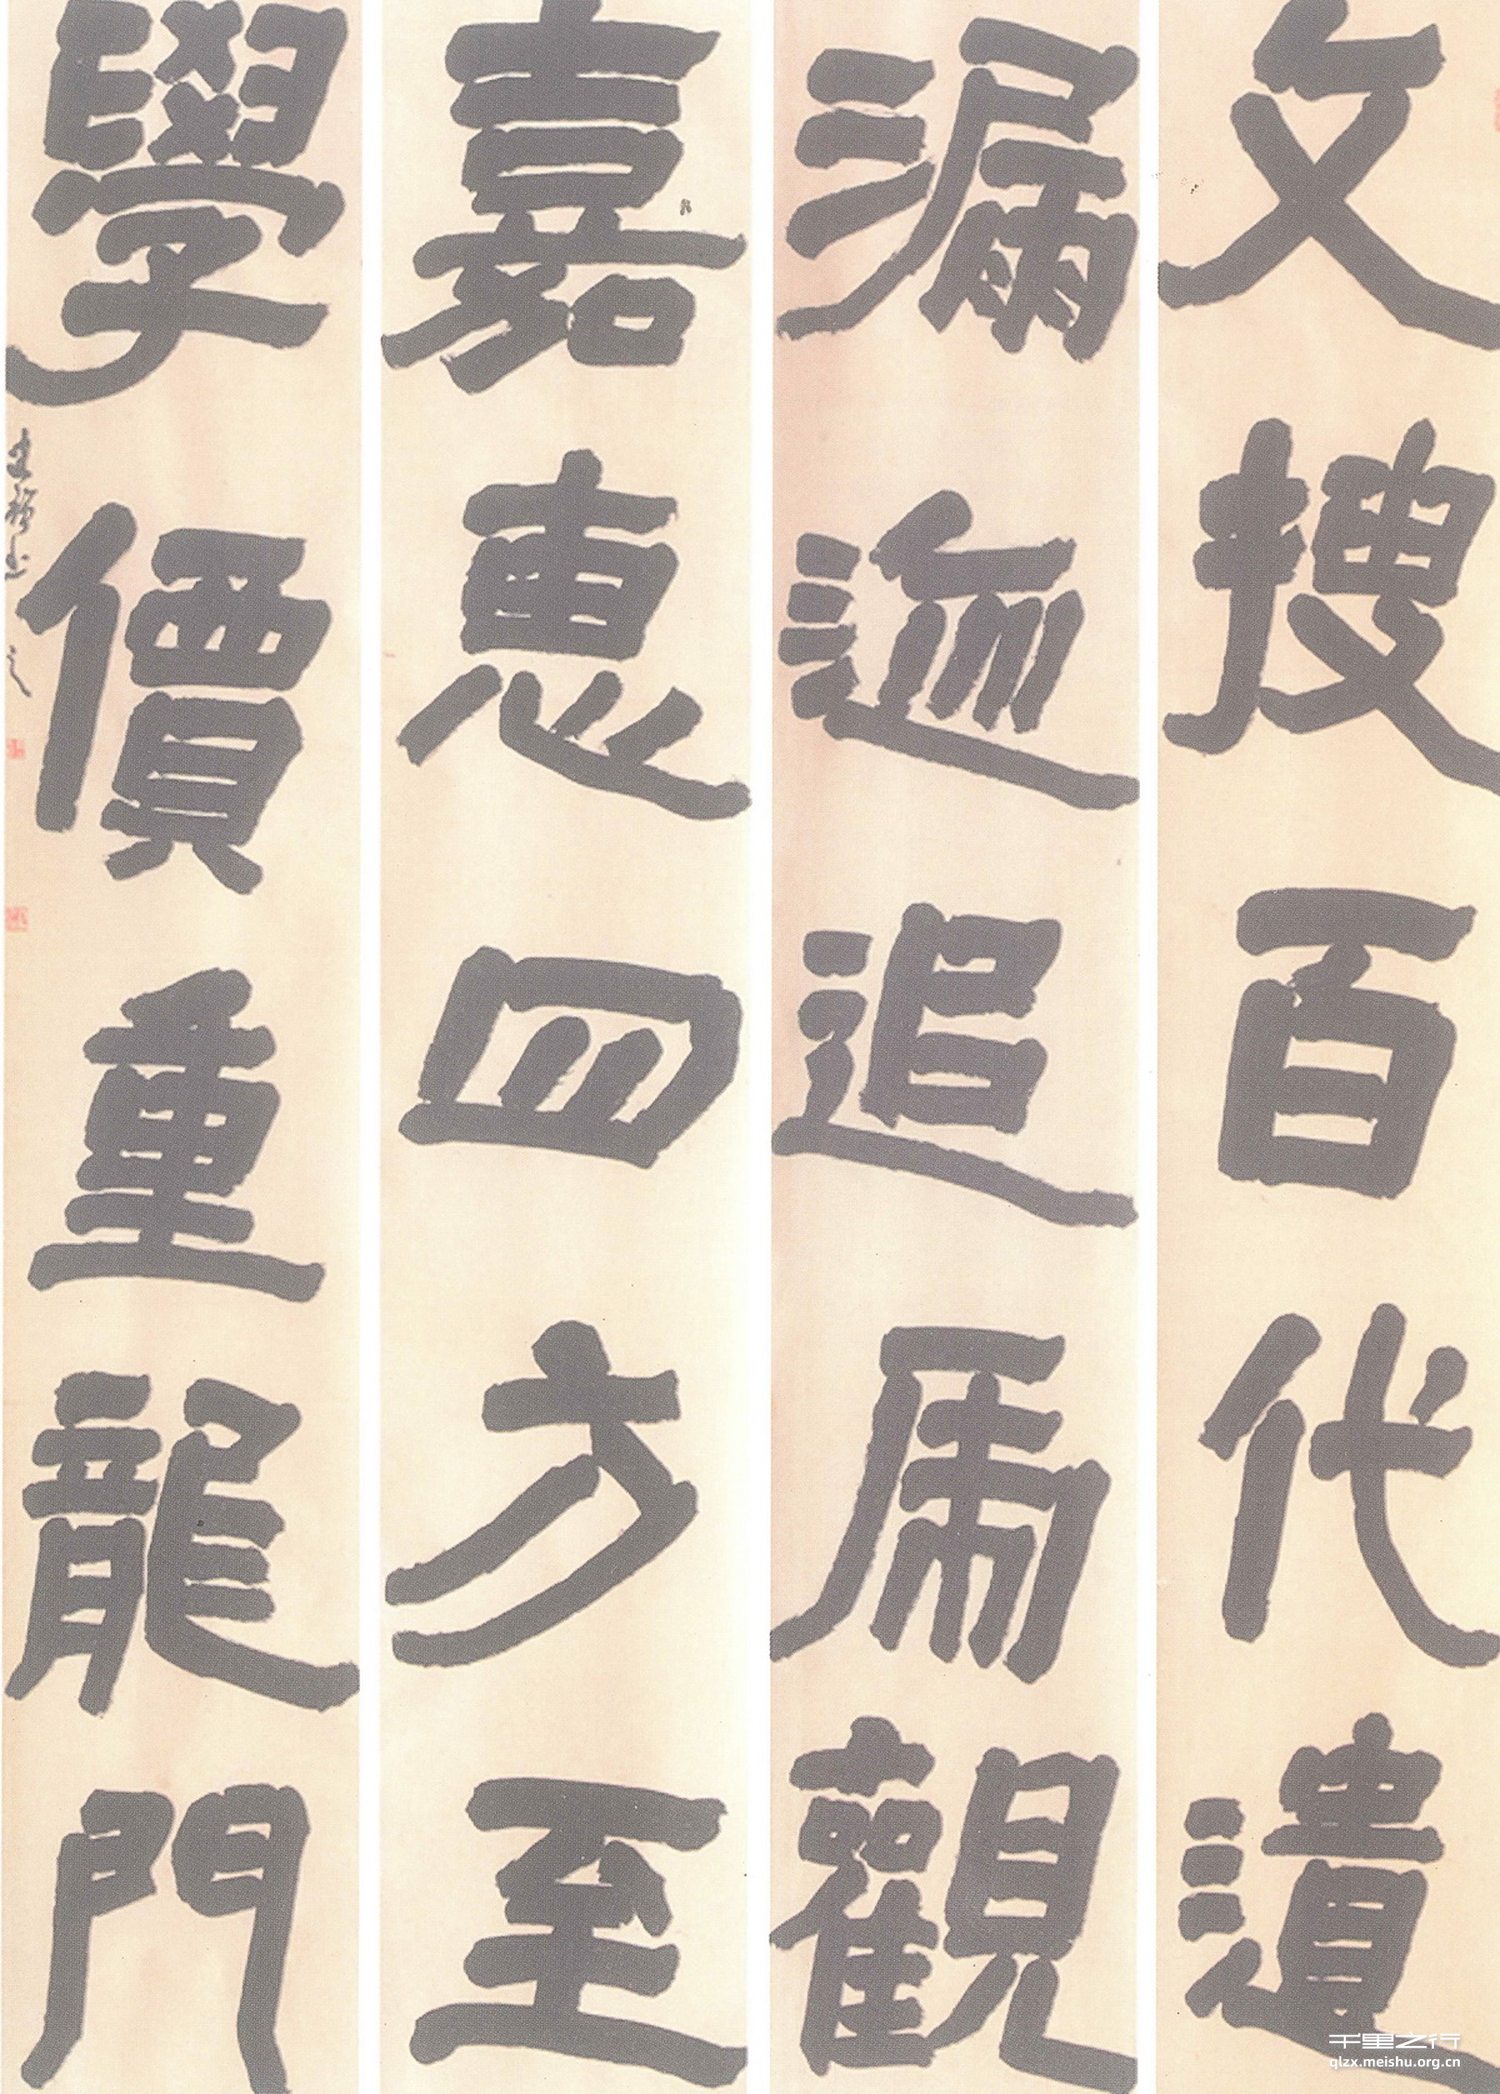 文搜百代遺
漏迹追虎觀
嘉惠四方至
學價重龍門
千里之行
qlzx.meishu.org.cn